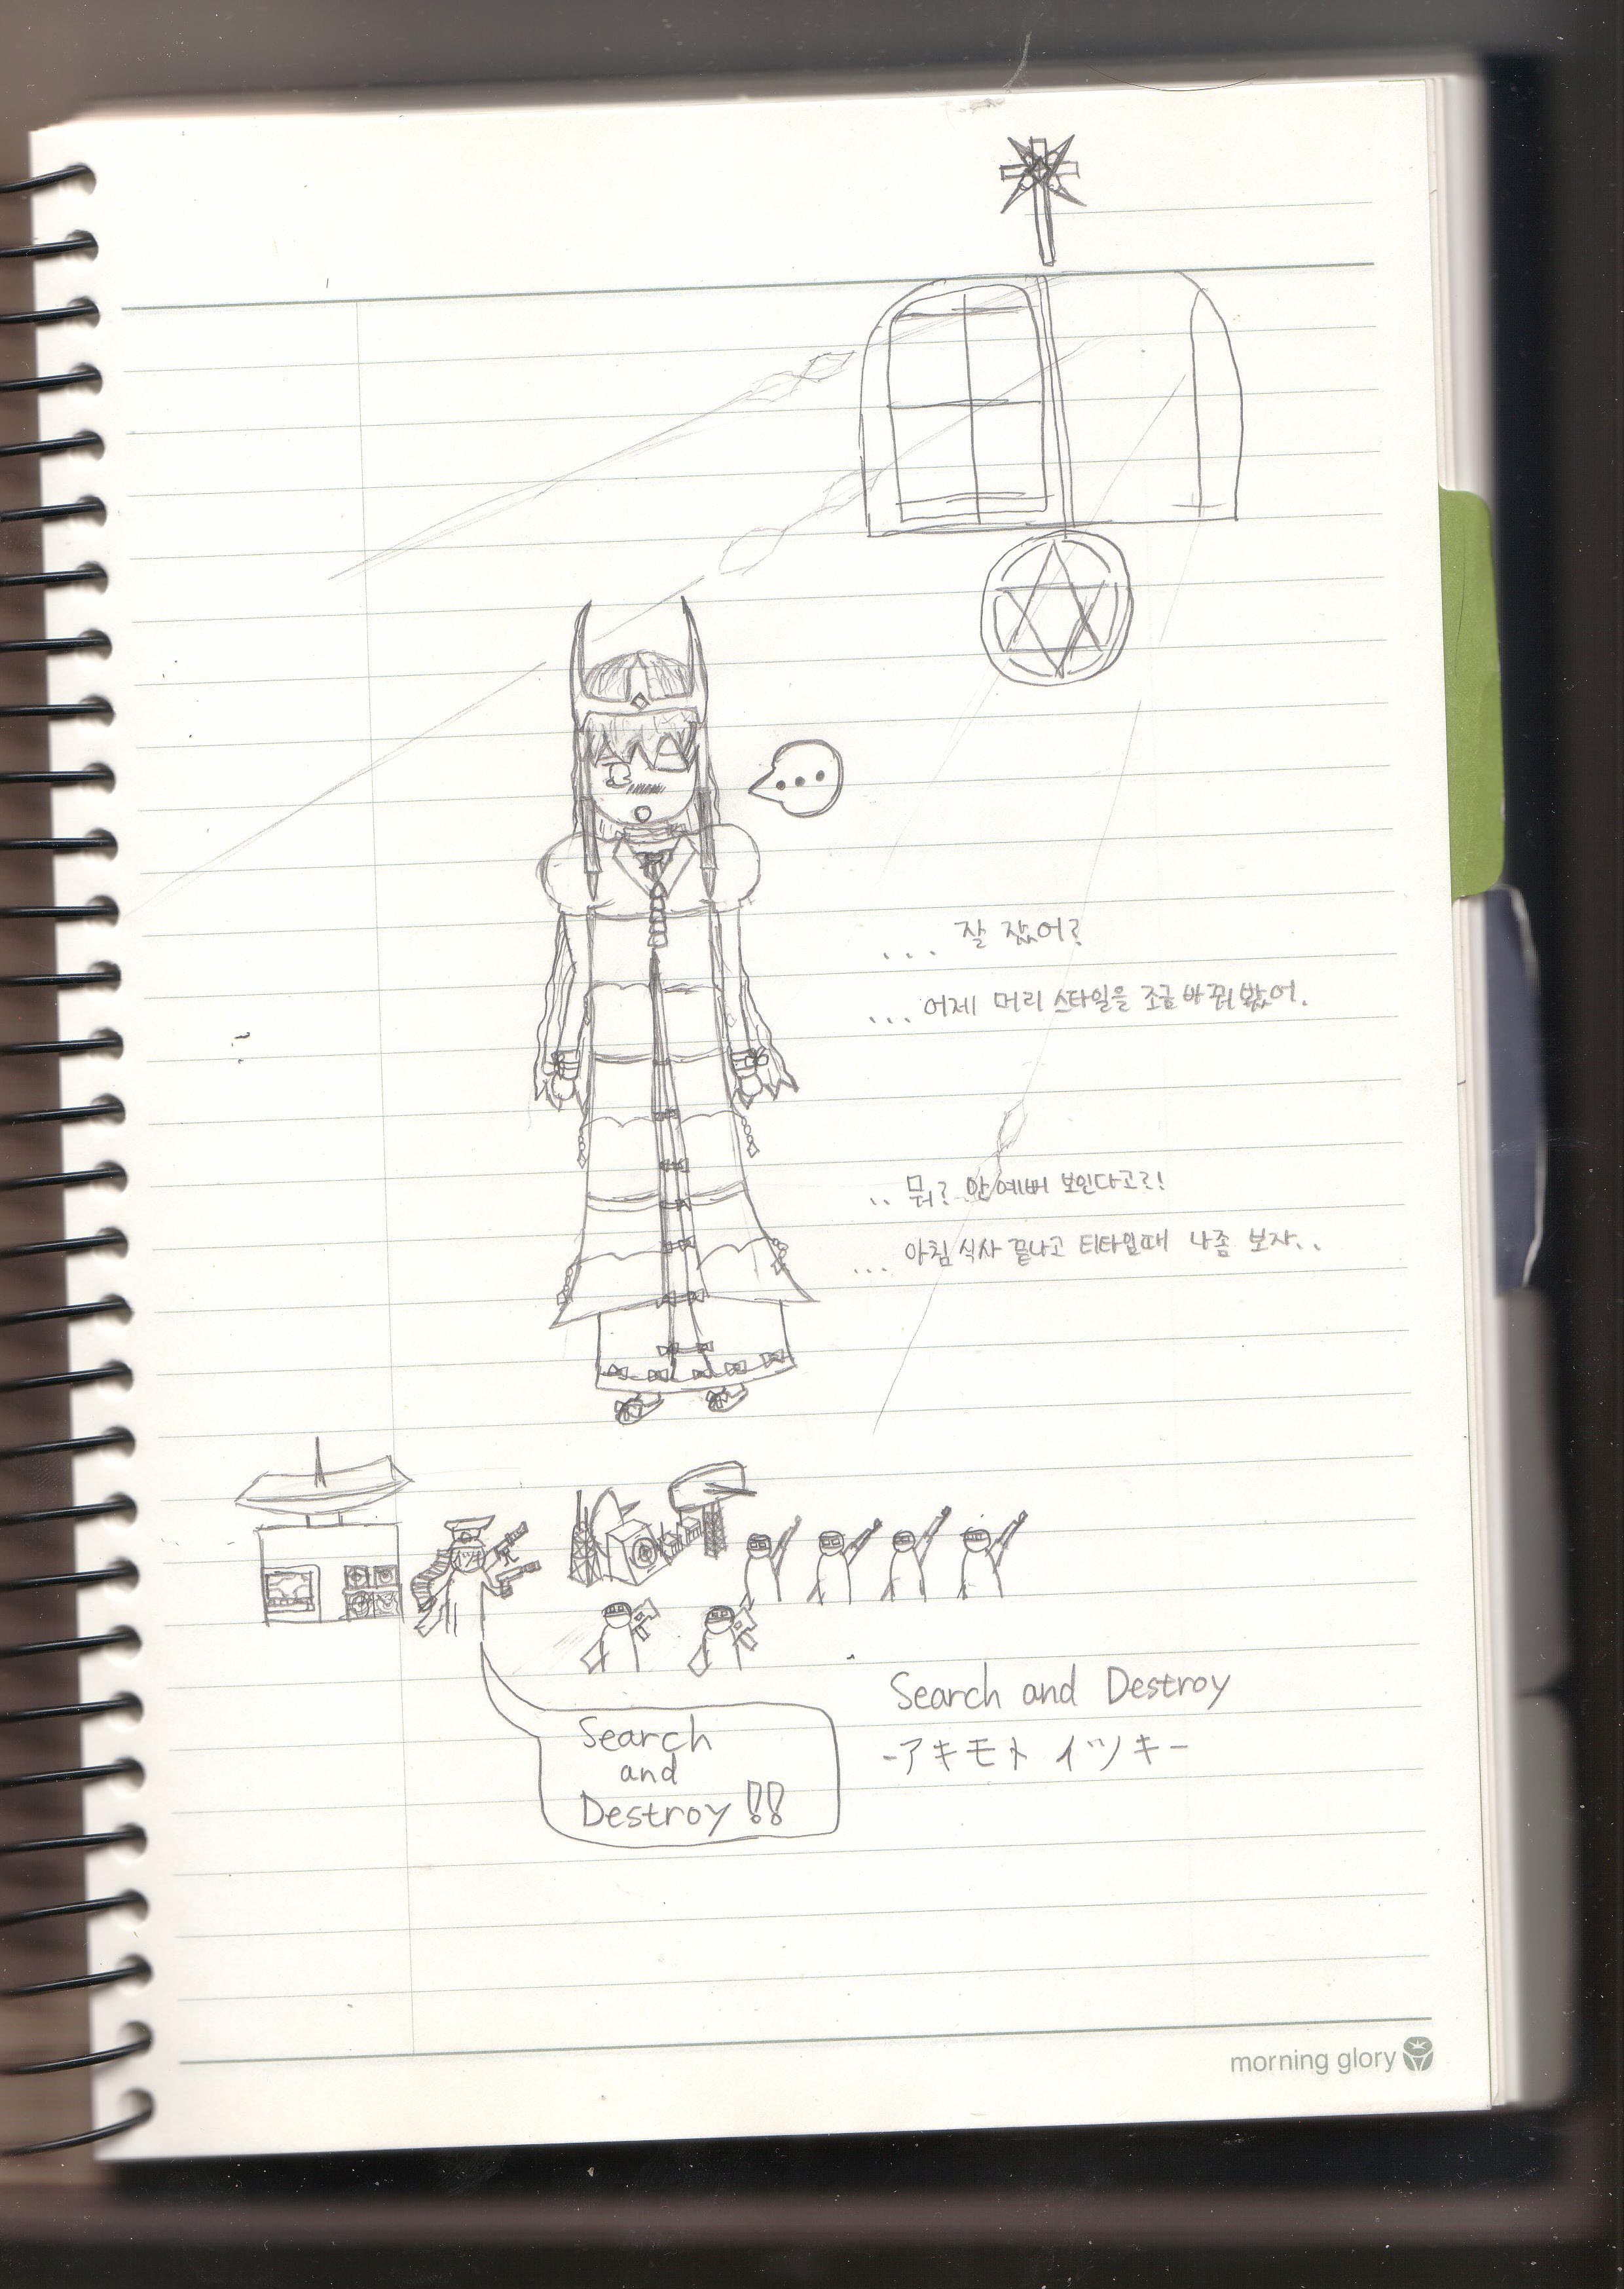 ...
... 잘 잤어?
... 어제 머리 스타일을 조금 바꿔봤어.
.. 뭐? 안 예뻐 보인다고?!
... 아침 식사 끝나고 티타임때 나좀 보자..
Search and Destroy
-アキモト イツキ-
Search
and
Destroy!!
morning glory